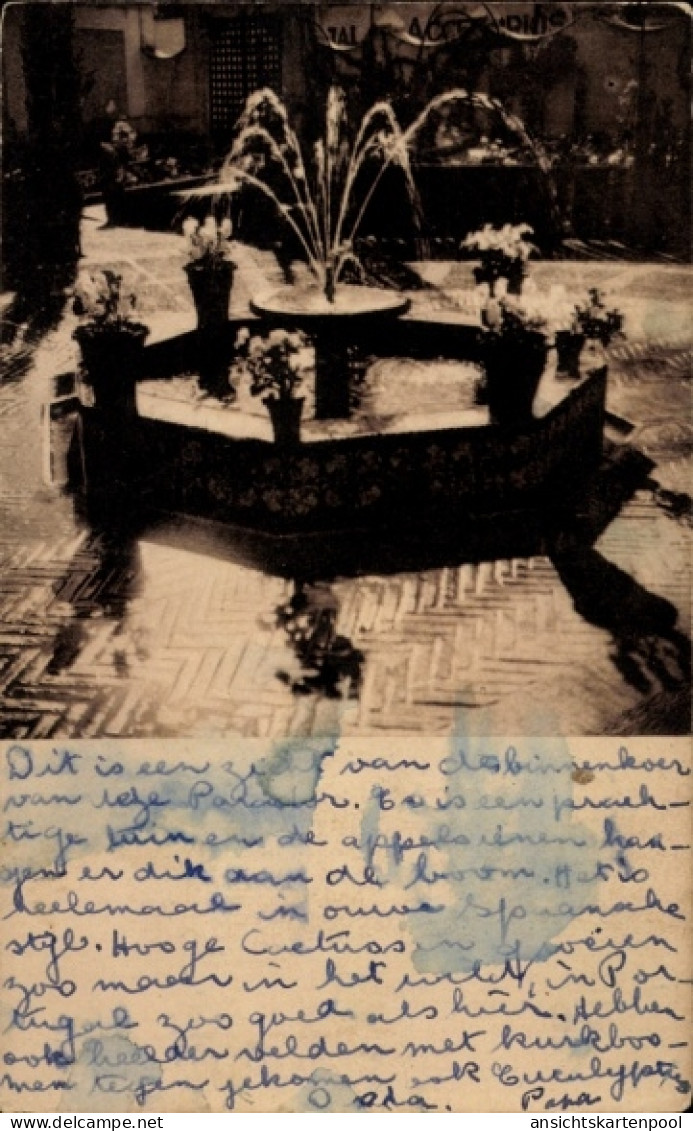 Dit is een zicht van de binnenkoer
van deze Parador. Er is een prach-
tige tuin en de appelsienen han-
gen er dik aan de boom. Het is
heelemaal in ouwe Spaansche
stijl. Hooge Cactussen groeien
zoo maar in het wild, in Por-
tugal zoo goed als hier. Hebben
ook heelder velden met kurkboo-
men tegen gekomen ook Eucalyptus
Papa
ansichtskartenpool